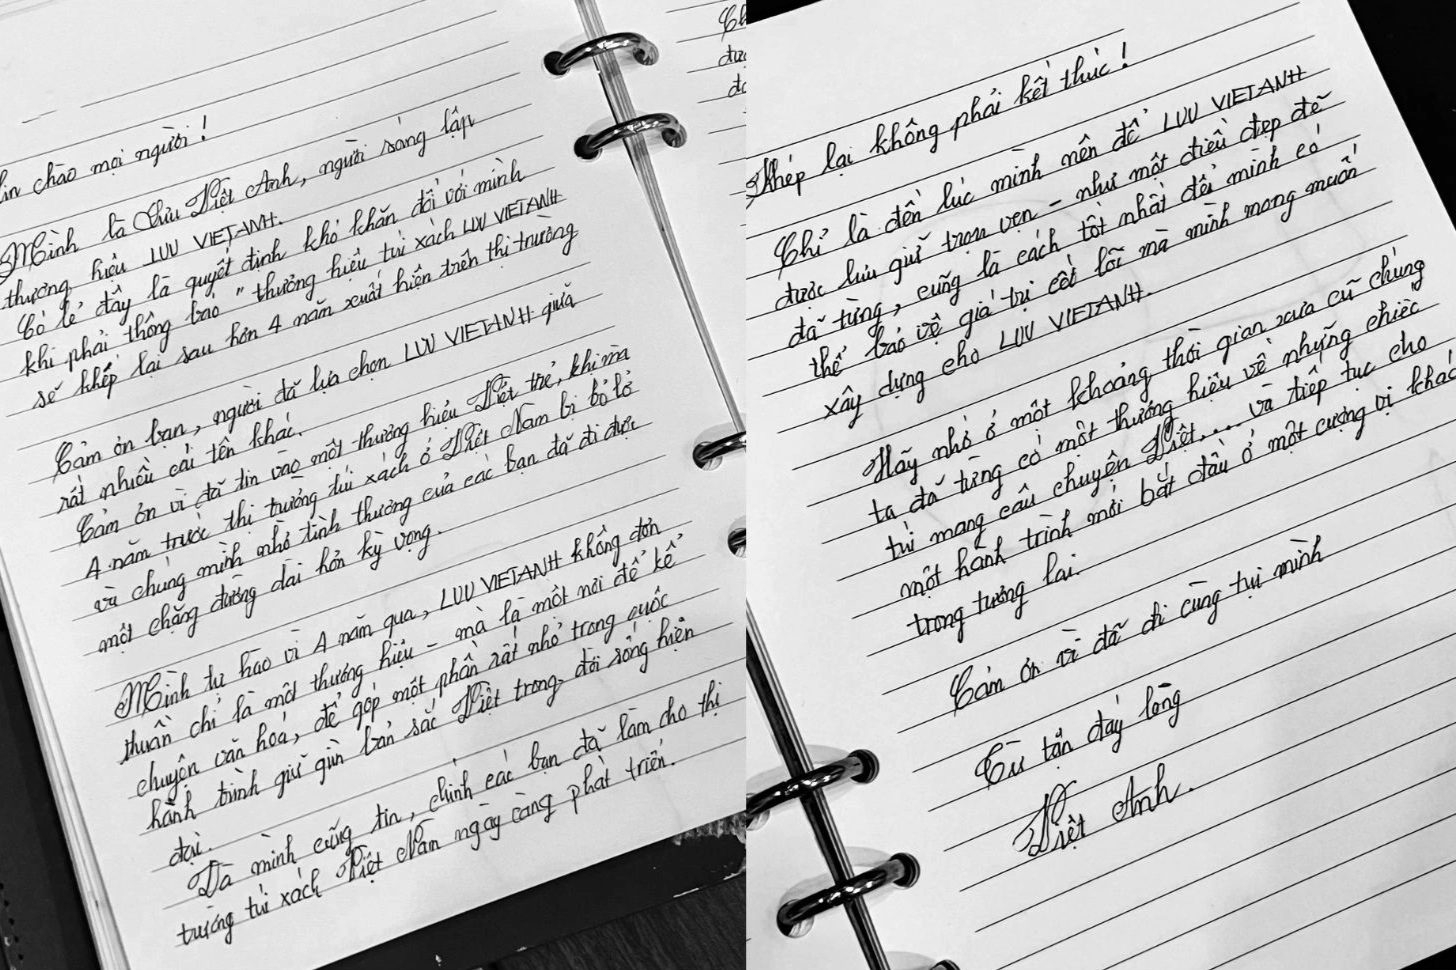 Xin chào mọi người!
Mình là Lưu Việt Anh, người sáng lập
thương hiệu LUU VIETANH.
Có lẽ đây là quyết định khó khăn đối với mình
khi phải thông báo "thương hiệu túi xách LUU VIETANH
sẽ khép lại sau hơn 4 năm xuất hiện trên thị trường
Cảm ơn bạn, người đã lựa chọn LUU VIETANH giữa
rất nhiều cái tên khác.
Cảm ơn vì đã tin vào một thương hiệu Việt trẻ, khi mà
4 năm trước thị trường túi xách ở Việt Nam bị bỏ lỡ
và chúng mình nhờ tình thương của các bạn đã đi được
một chặng đường dài hơn kỳ vọng.
Mình tự hào vì 4 năm qua, LUU VIETANH không đơn
thuần chỉ là một thương hiệu - mà là một nơi để kể
chuyện văn hóa, để góp một phần rất nhỏ trong quốc
hành trình giữ gìn bản sắc Việt trong đời sống hiện
đại.
Và mình cũng tin, chính các bạn đã làm cho thị
trường túi xách Việt Nam ngày càng phát triển.
Khép lại không phải kết thúc!
Chỉ là đến lúc mình nên để LUU VIETANH
được lưu giữ trọn vẹn - như một điều đẹp đẽ
đã từng, cũng là cách tốt nhất để mình có
thể bảo vệ giá trị cốt lõi mà mình mong muốn
xây dựng cho LUU VIETANH.
Hãy nhớ ở một khoảng thời gian xưa cũ chúng
ta đã từng có một thương hiệu về những chiếc
túi mang câu chuyện Việt..... và tiếp tục cho
một hành trình mới bắt đầu ở một cương vị khác
trong tương lai.
Cảm ơn vì đã đi cùng tụi mình
Từ tận đáy lòng
Việt Anh.